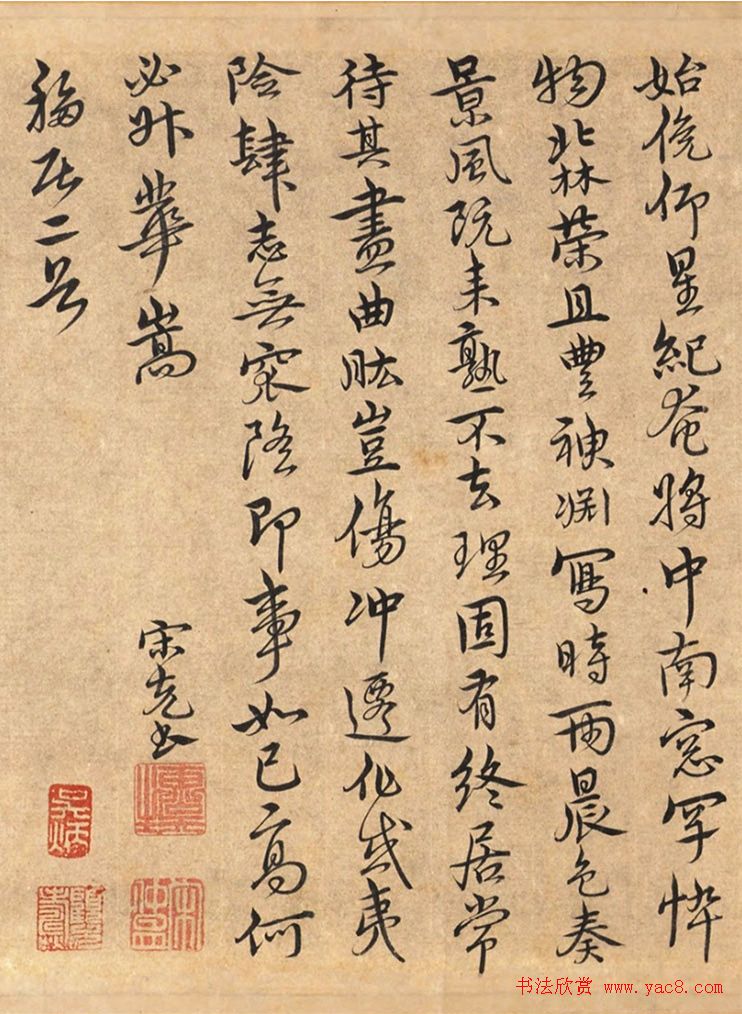 始俛仰星紀奄將中南窓罕悴
物北林榮且豐神渕寫時雨晨色奏
景風既来孰不去理固有終居常
待其盡曲肱豈傷冲遷化或夷
險肆志無窊隆即事如已高何
必升華嵩
宋克書
书法欣赏 www.yac8.com